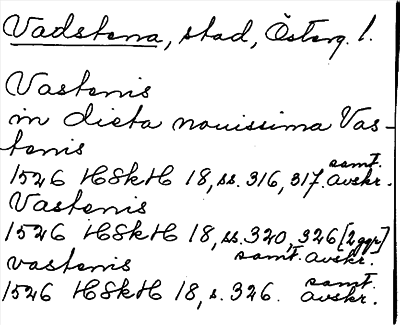 Vadstena, stad, Österg. l.
Vastenis
in dieta nouissima Vas-
tenis
1526 HSkH 18, ss. 316, 317. samt. avskr.
Vastenis
1526 HSkH 18, ss. 320, 326 [2 ggr]
samt. avskr.
vastenis
1526 HSkH 18, s. 326. samt. avskr.